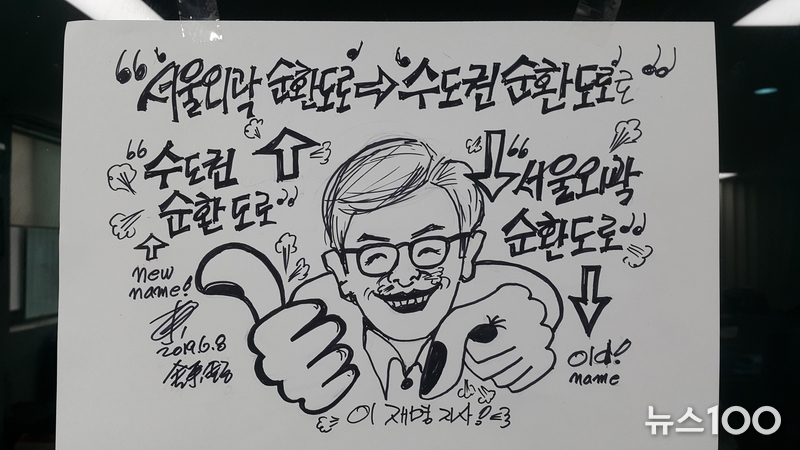 "서울외곽 순환도로" → "수도권 순환도로"로"
"수도권
순환도로"
new
name!
2019.6.8
"서울외곽
순환도로"
old!
name
이재명 지사!
뉴스100